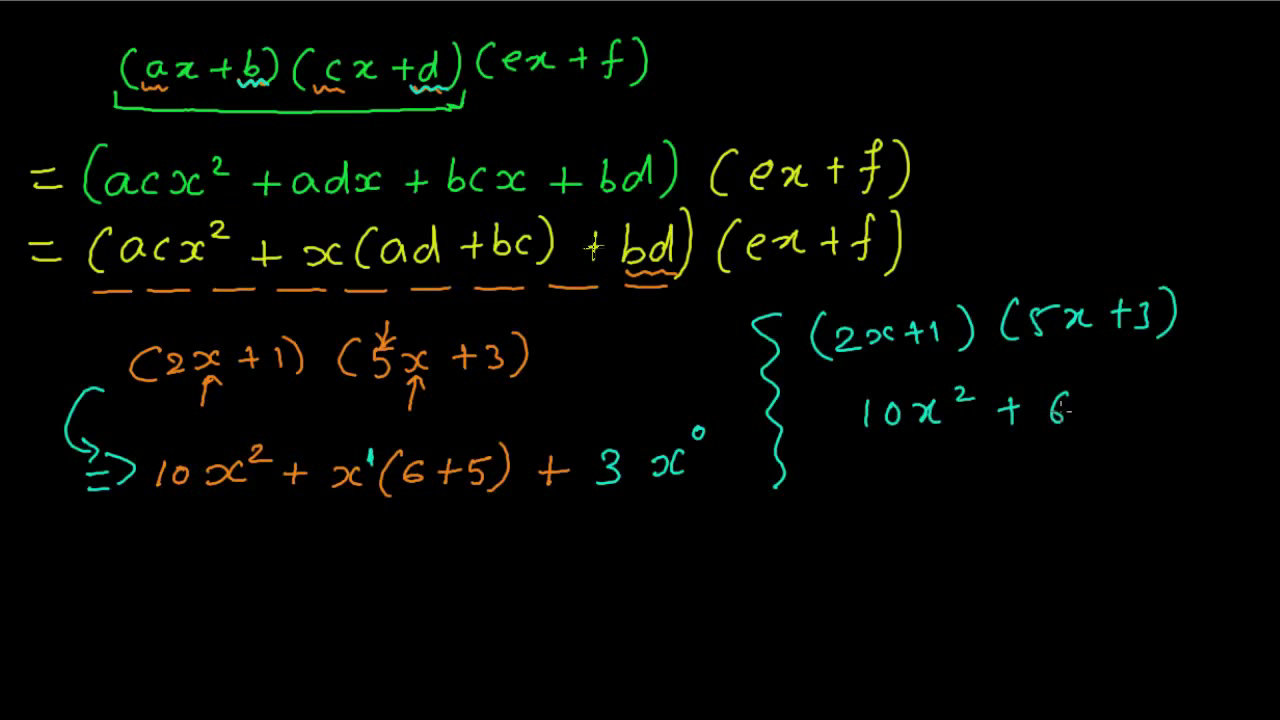 (ax+b)(cx+d)(ex+f)
=(acx²+adx+bcx+bd)(ex+f)
=(acx²+x(ad+bc)+bd)(ex+f)
(2x+1)(5x+3)
⇒10x²+x¹(6+5)+3x⁰
(2x+1)(5x+3)
10x²+6